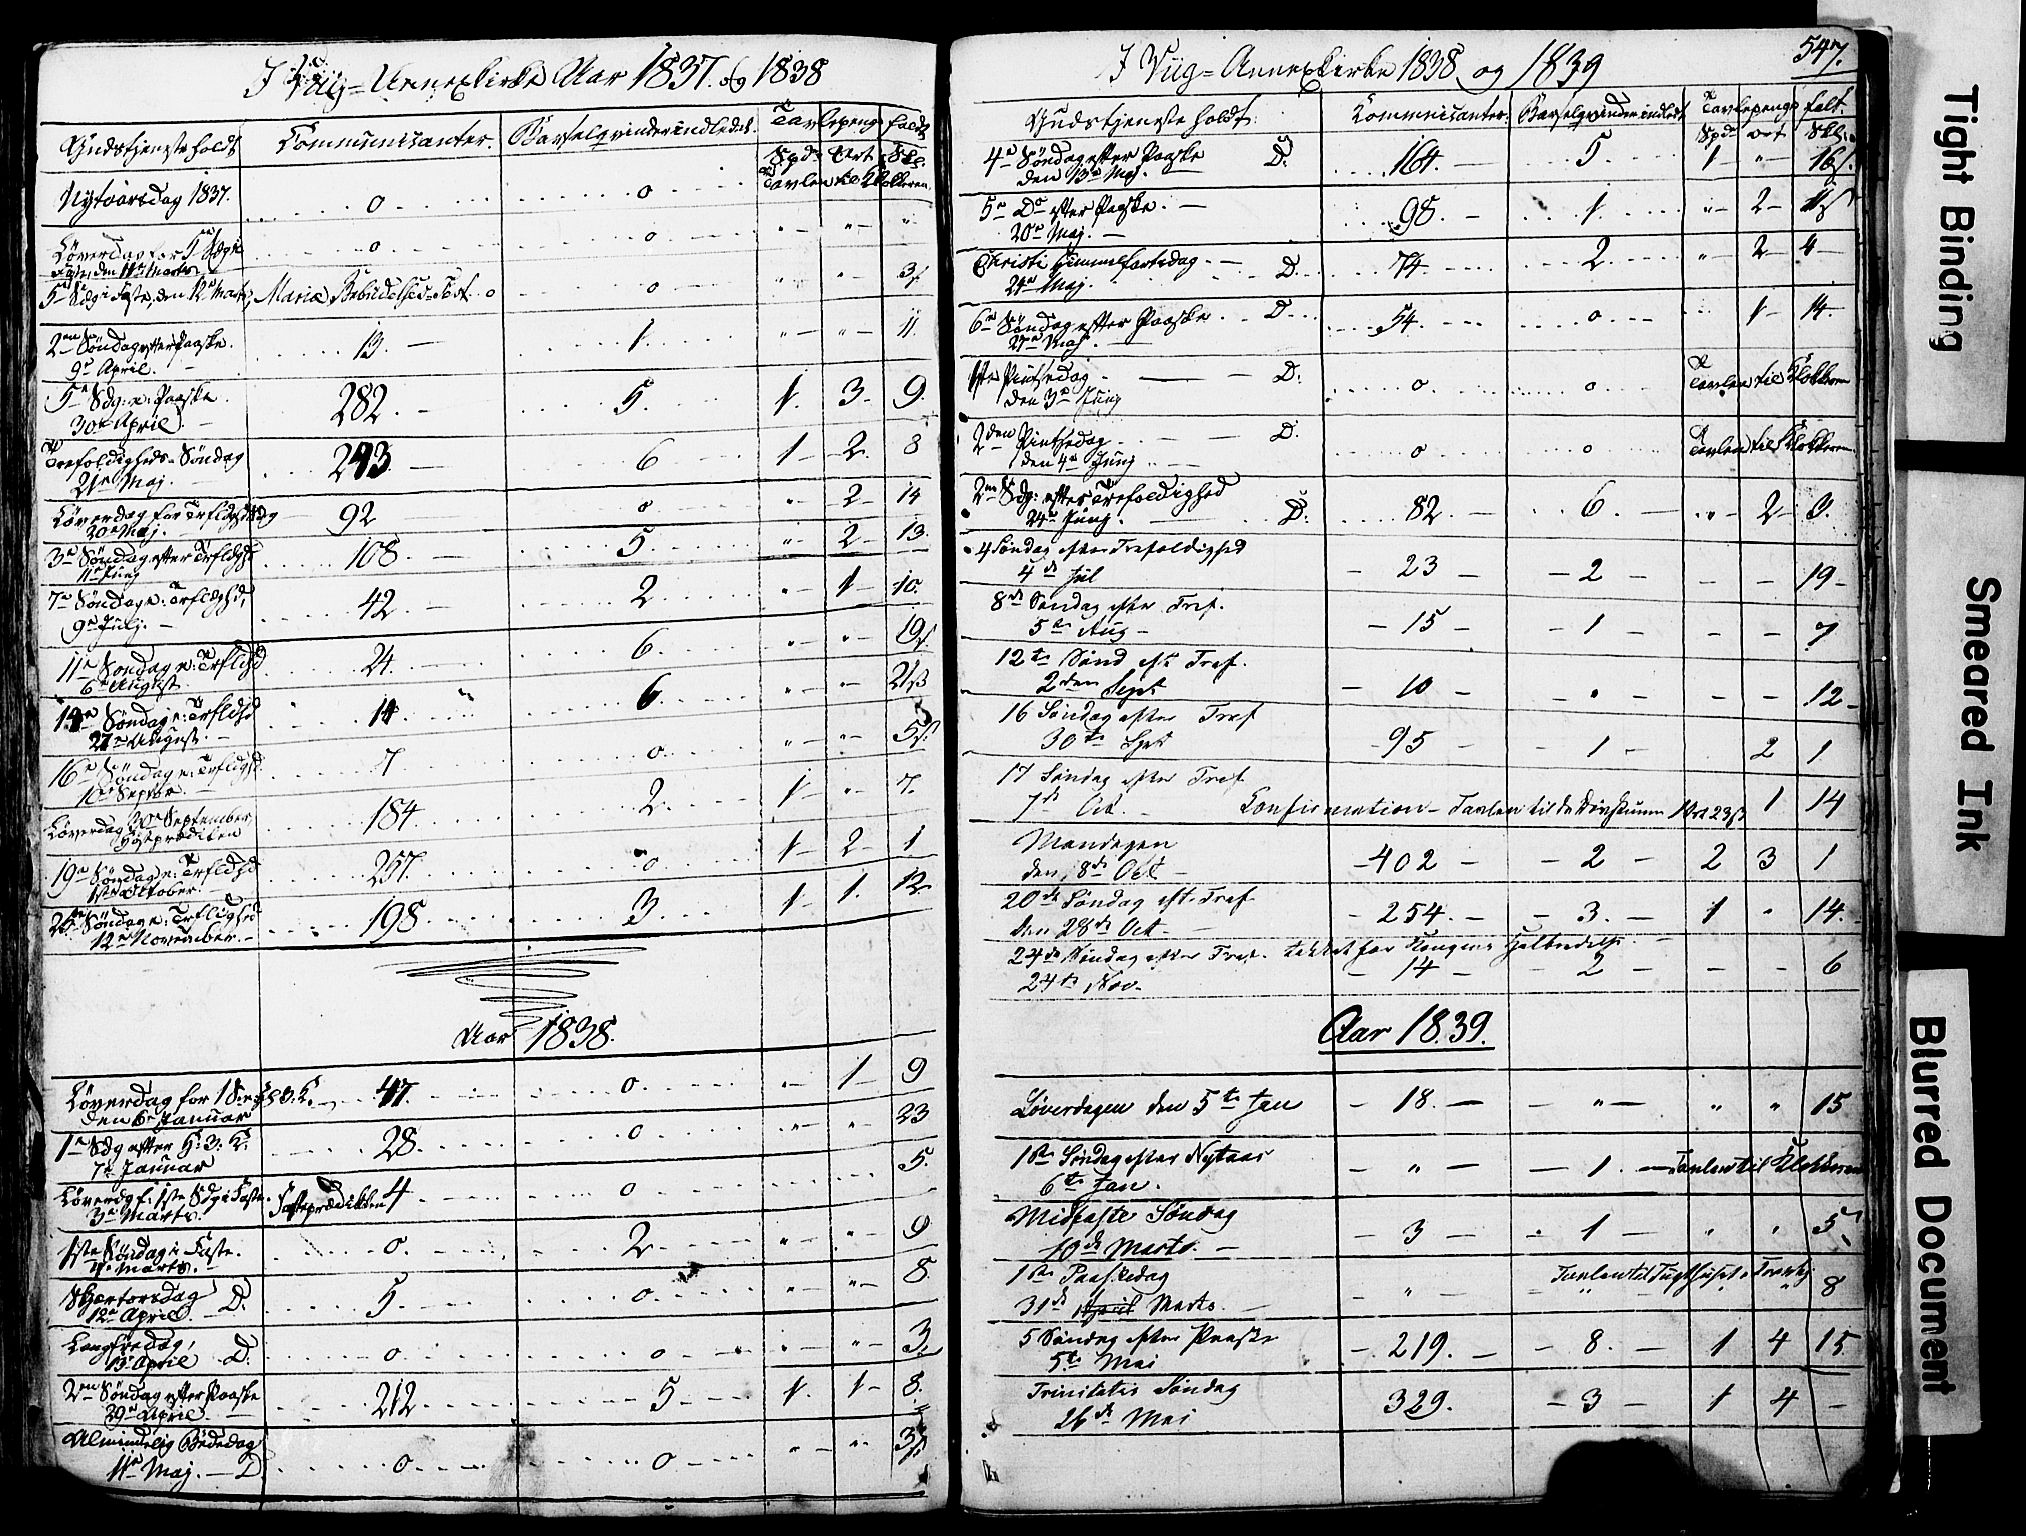 I Viig=Annexkirke Aar 1837. og 1838
Gudstjeneste holdt Communicanter. Barselqvinder indledet. Tavlepenge faldt
Spd. Ort Skl.
Nytaarsdag 1837. 0 0 Tavlen til Klokkeren
Løverdag for 5te Sdg i 0 0 " " "
Faste, den 11te Marts
5te Sdg i Faste, den 12te Marts, Mariæ Bebudelses=Fest. 0 0 " " 3
2den Søndag efter Paaske. 13. 1. " " 11
9de April.
5te Sdg. e: Paaske 282. 5. 1. 3. 9.
30te April.
Trefoldigheds=Søndag 293. 6 1 2 8
21de Maj.
Løverdag for 92 0 " 2 14
3de Søndag efter Trfldghd 108. 5. " 2 13.
11te Juny
7de Søndag e: Trfldghd, 42. 2 " 1 10.
9de July.
11te Søndag e: Trfldghd 24. 6. " " 19
6te August
14de Søndag e: Trfldghd 14 6 " " 21
27de August.
16de Søndag e: Trfldghd. 7 0. " " 5
10de Septbr.
Løverdag 30te September, 184. 2. 1 " 7.
Høstprædiken
19de Søndag e: Trfldghd 257. 0 1 2 1
1ste October.
25de Søndag e: Trfldighed 198. 3. 1 1. 12
12te November.
Aar 1838.
Løverdag for 1 S. e. H. 3. K. 47. 0 " 1 9
den 6te Januar
1ste Sdg efter H. 3. K. 28. 0 " " 23
7de Januar
Løverdg f. 1ste Sdg i Faste. Fasteprædikken 4 0 5.
3de Marts.
1ste Søndag i Faste. 0. 2 " " 9
4de Marts.
Skjertorsdag D. 5. 0. " 8.
12te April.
Langfredag, 0 0 " " 3
13de April D.
2den Søndag efter Paaske 212 5 1. 1 8.
29de April.
Almindelig Bededag 0 0 " " 3
11te Maj. D.
547.
I Viig=Annexkirke 1838 og 1839
Gudstjeneste holdt. Kommunicanter. Barselqvinder indledet Tavlepenge falt.
Spd. Ort Skl.
4de Søndag efter Paaske D. 164. 5 1 " 16
den 13de Maj.
5te Do efter Paaske. 98. 1. " 2
20de Maj.
Christi Himmelfartsdag. D. 74. 2 " 2 4
24de Maj.
6te Søndag efter Paaske. D. 54. 0 1 14
27de Maj.
1ste Pintsedag D. 0 0 Tavlen til Klokkeren
den 3de Juny
2den Pintsedag D. 0 0 Tavlen til Klokkeren
den 4de Juny
2den Sdg: efter Trefoldighed D. 82. 6. " 2 3.
24de Juny.
4 Søndag efter Trefoldighed 23 2 19
4de Jul
8de Søndag efter Tref. 15 1 7
5te Aug
12te Sønd eft Tref. 10 " 12
2den Sept
16 Søndag efter Tref 95 1 2 1
30te Sept
17 Søndag efter Tref
7de Oct. Confirmation Tavlen til 1 Ort 23 1 14
Mandagen 402 2 2 3 1
den 8de Oct
20de Søndag eft. Tref 254. 3. 1 " 14.
den 28de Oct
24de Søndag efter Tref. takket for Kongens Helbredelse.
24de Nov. 14 2 6
Aar 1839.
Løverdagen den 5te Jan 18. " " " 15
1ste Søndag efter Nytaar " 1. Tavlen til Klokkeren
6te Jan.
Midfaste Søndag 3 1 " " 5
10de Marts.
1ste Paaskedag Tavlen til Tugthuset i Tronhj
31de April Marts. " " " " 8
5 Søndag efter Paaske 219. 8. 1 4 15
5te Mai
Trinitatis Søndag 329. 3 1 4
26de Mai
Tight Binding
Smeared Ink
Blurred Document